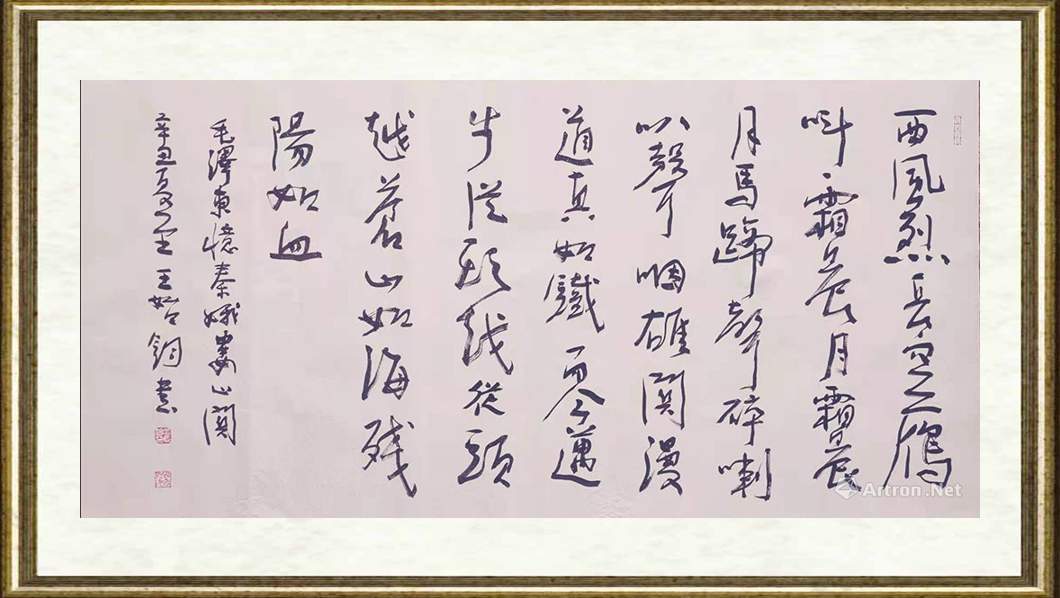 西風烈長空雁
叫霜晨月霜晨
月馬蹄聲碎喇
叭聲咽雄関漫
道真如鐵而今邁
步從頭越從頭
越蒼山如海殘
陽如血
毛澤東憶秦娥婁山関
辛丑夏月 王 書
Artron.Net